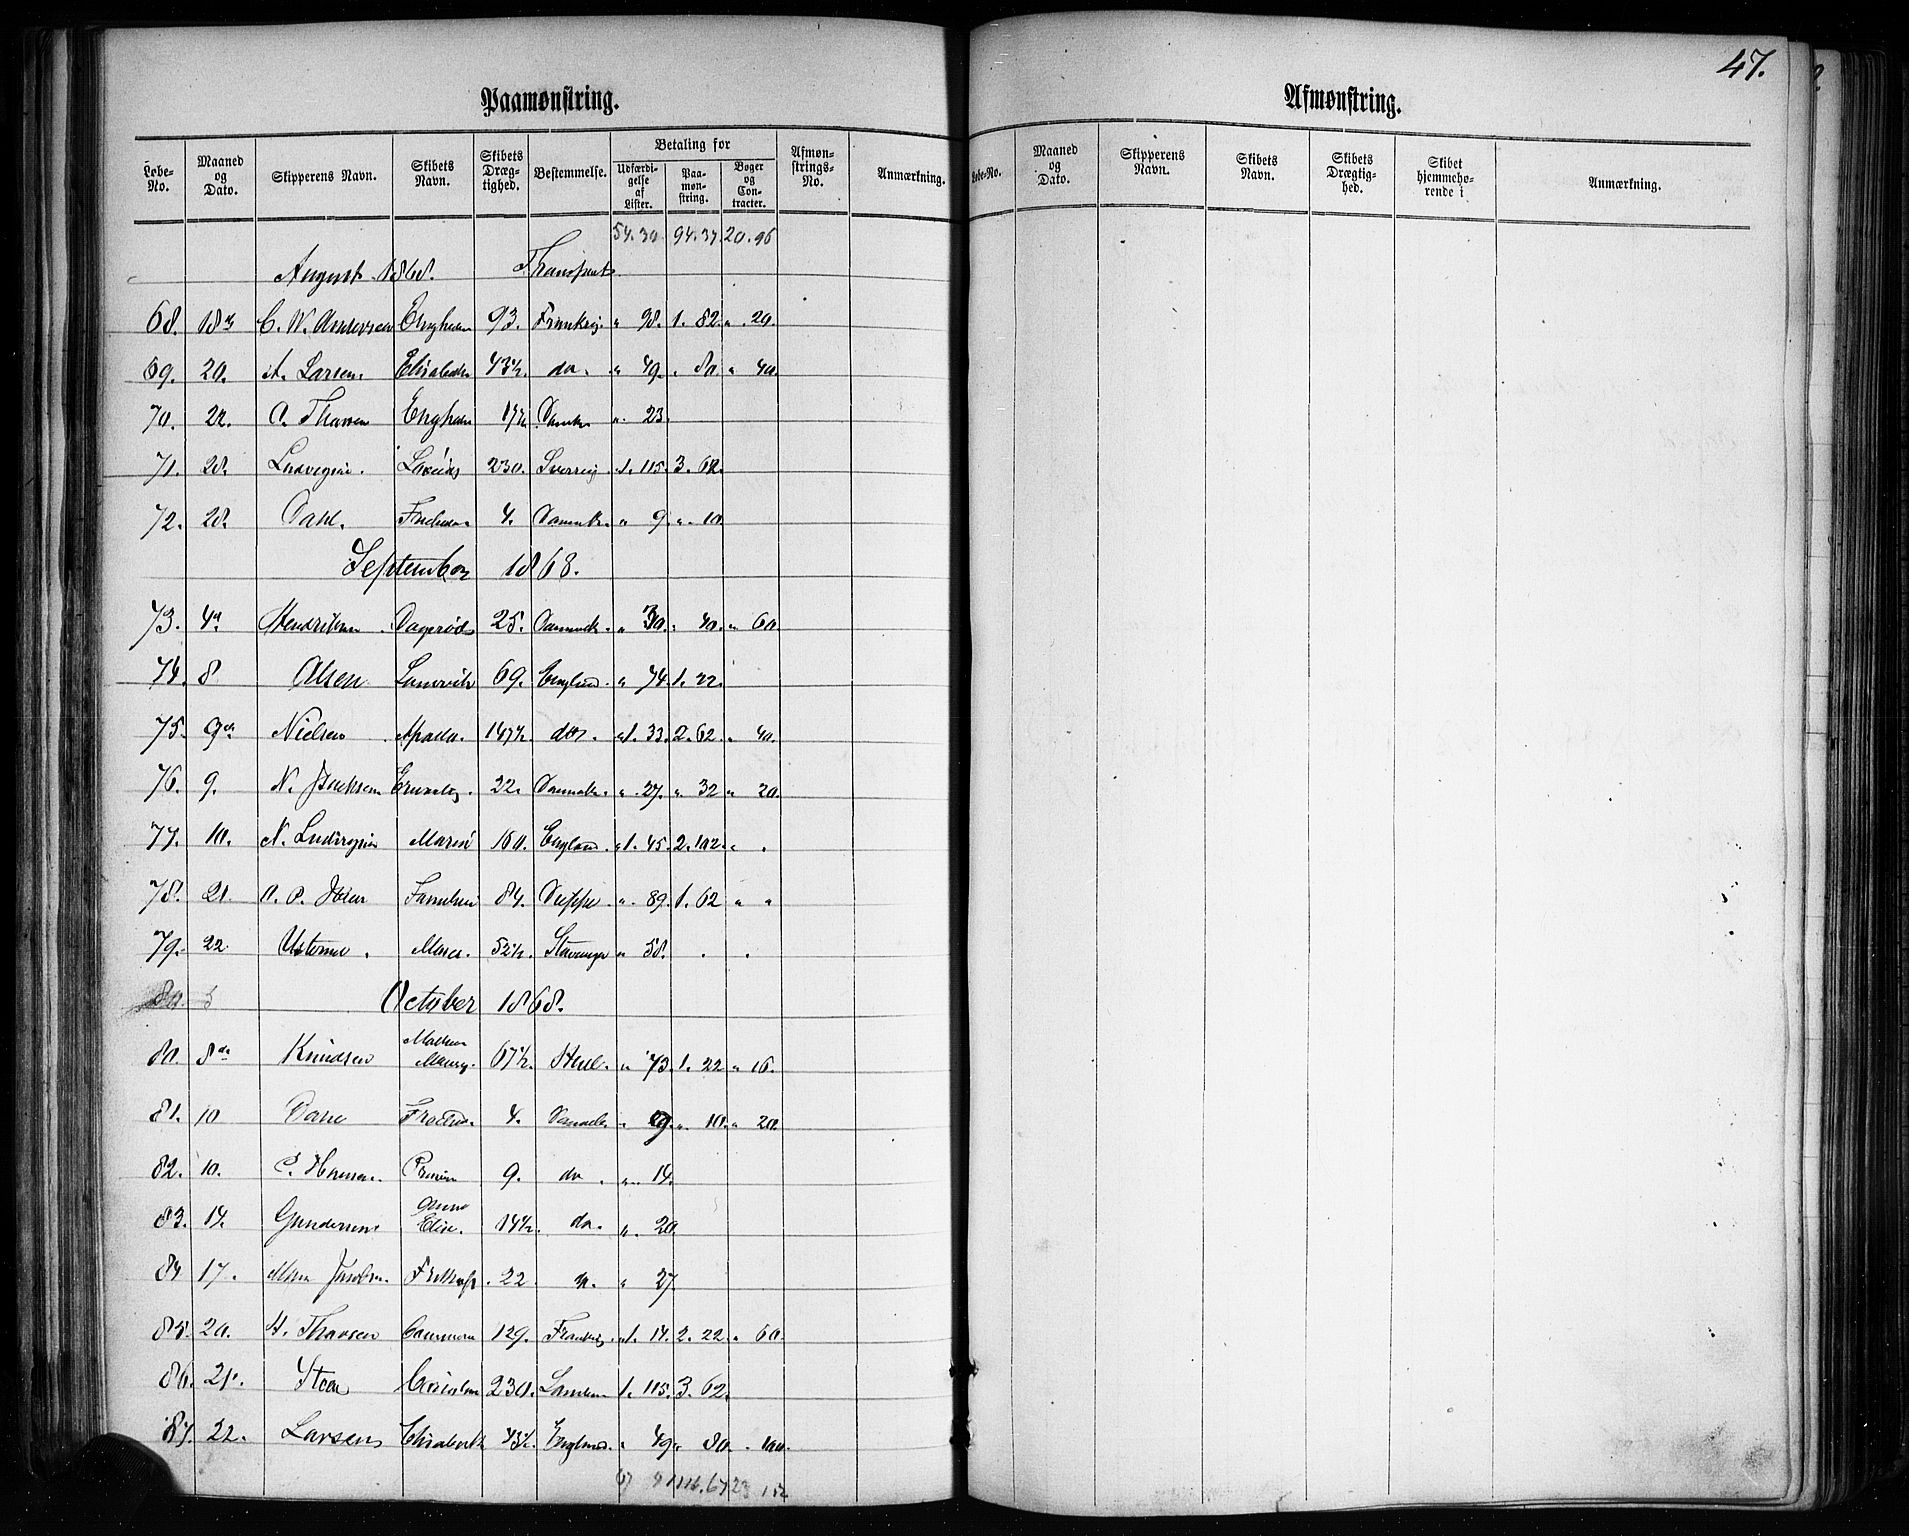 47.
Paamønstring.
Løbe-No. Maaned og Dato. Skipperens Navn. Skibets Navn. Skibets Dræg-tighed. Bestemmelse. Betaling for Udfærdi-gelse af Lister. Paa-møn-string. Bøger og Con-tracter. Afmøn-strings-No. Anmærkning.
54. 30. 94. 37. 20. 96
August 1868. Transport
68. 18de C. W. Andersen Enghaven 93. Frankrig " 98. 1. 82. " 20.
69. 20. A. Larsen. Elisabeth 43½. do. " 49. " 80. " 40.
70. 22. O. Thorsen 17½ Danmk " 23.
71. 28. Ludvigsen. 230. Sverrig 1. 115. 3. 62.
72. 28. Dahl. 4. Danmk. " 9. " 10.
September 1868.
73. 4de Hendriksen Dagsrøds 25. Danmark. " 30. " 40. " 60.
74. 8 Olsen Laurvik 69. England. " 74. 1. 22.
75. 9de Nielsen 147½ do. 1. 33. 2. 62 " 40.
76. 9. N. Jacobsen 22. Danmark. " 27. " 32 " 20.
77. 10. N. Ludvigsen Marie 160. England 1. 45. 2. 102. "
78. 21. Familien 84. Dieppe. " 89. 1. 62 " "
79. 22 Marie. 52½. Stavanger " 58.
80. 5 October 1868.
80. 8de Knudsen 67½. " 73. 1. 22 " 16.
81. 10 Dahl 4. Danmark " 9. " 10. " 20.
82. 10. P. Hansen. 9. do. " 14.
83. 14. Gundersen Anna Elise. 14½. do. " 20.
84 17. Jacobsen. Frithiof. 22. " 27
85. 20. H. Thorsen 129. Frankrig 1. 14. 2. 22. " 60.
86. 21. Steen 230. 1. 115. 3. 62.
87. 22. Larsen Elisabeth 43½. England. " 49 " 80. 100.
Afmønstring.
Løbe-No. Maaned og Dato. Skipperens Navn. Skibets Navn. Skibets Drægtig-hed. Skibet hjemmehø-rende i Anmærkning.